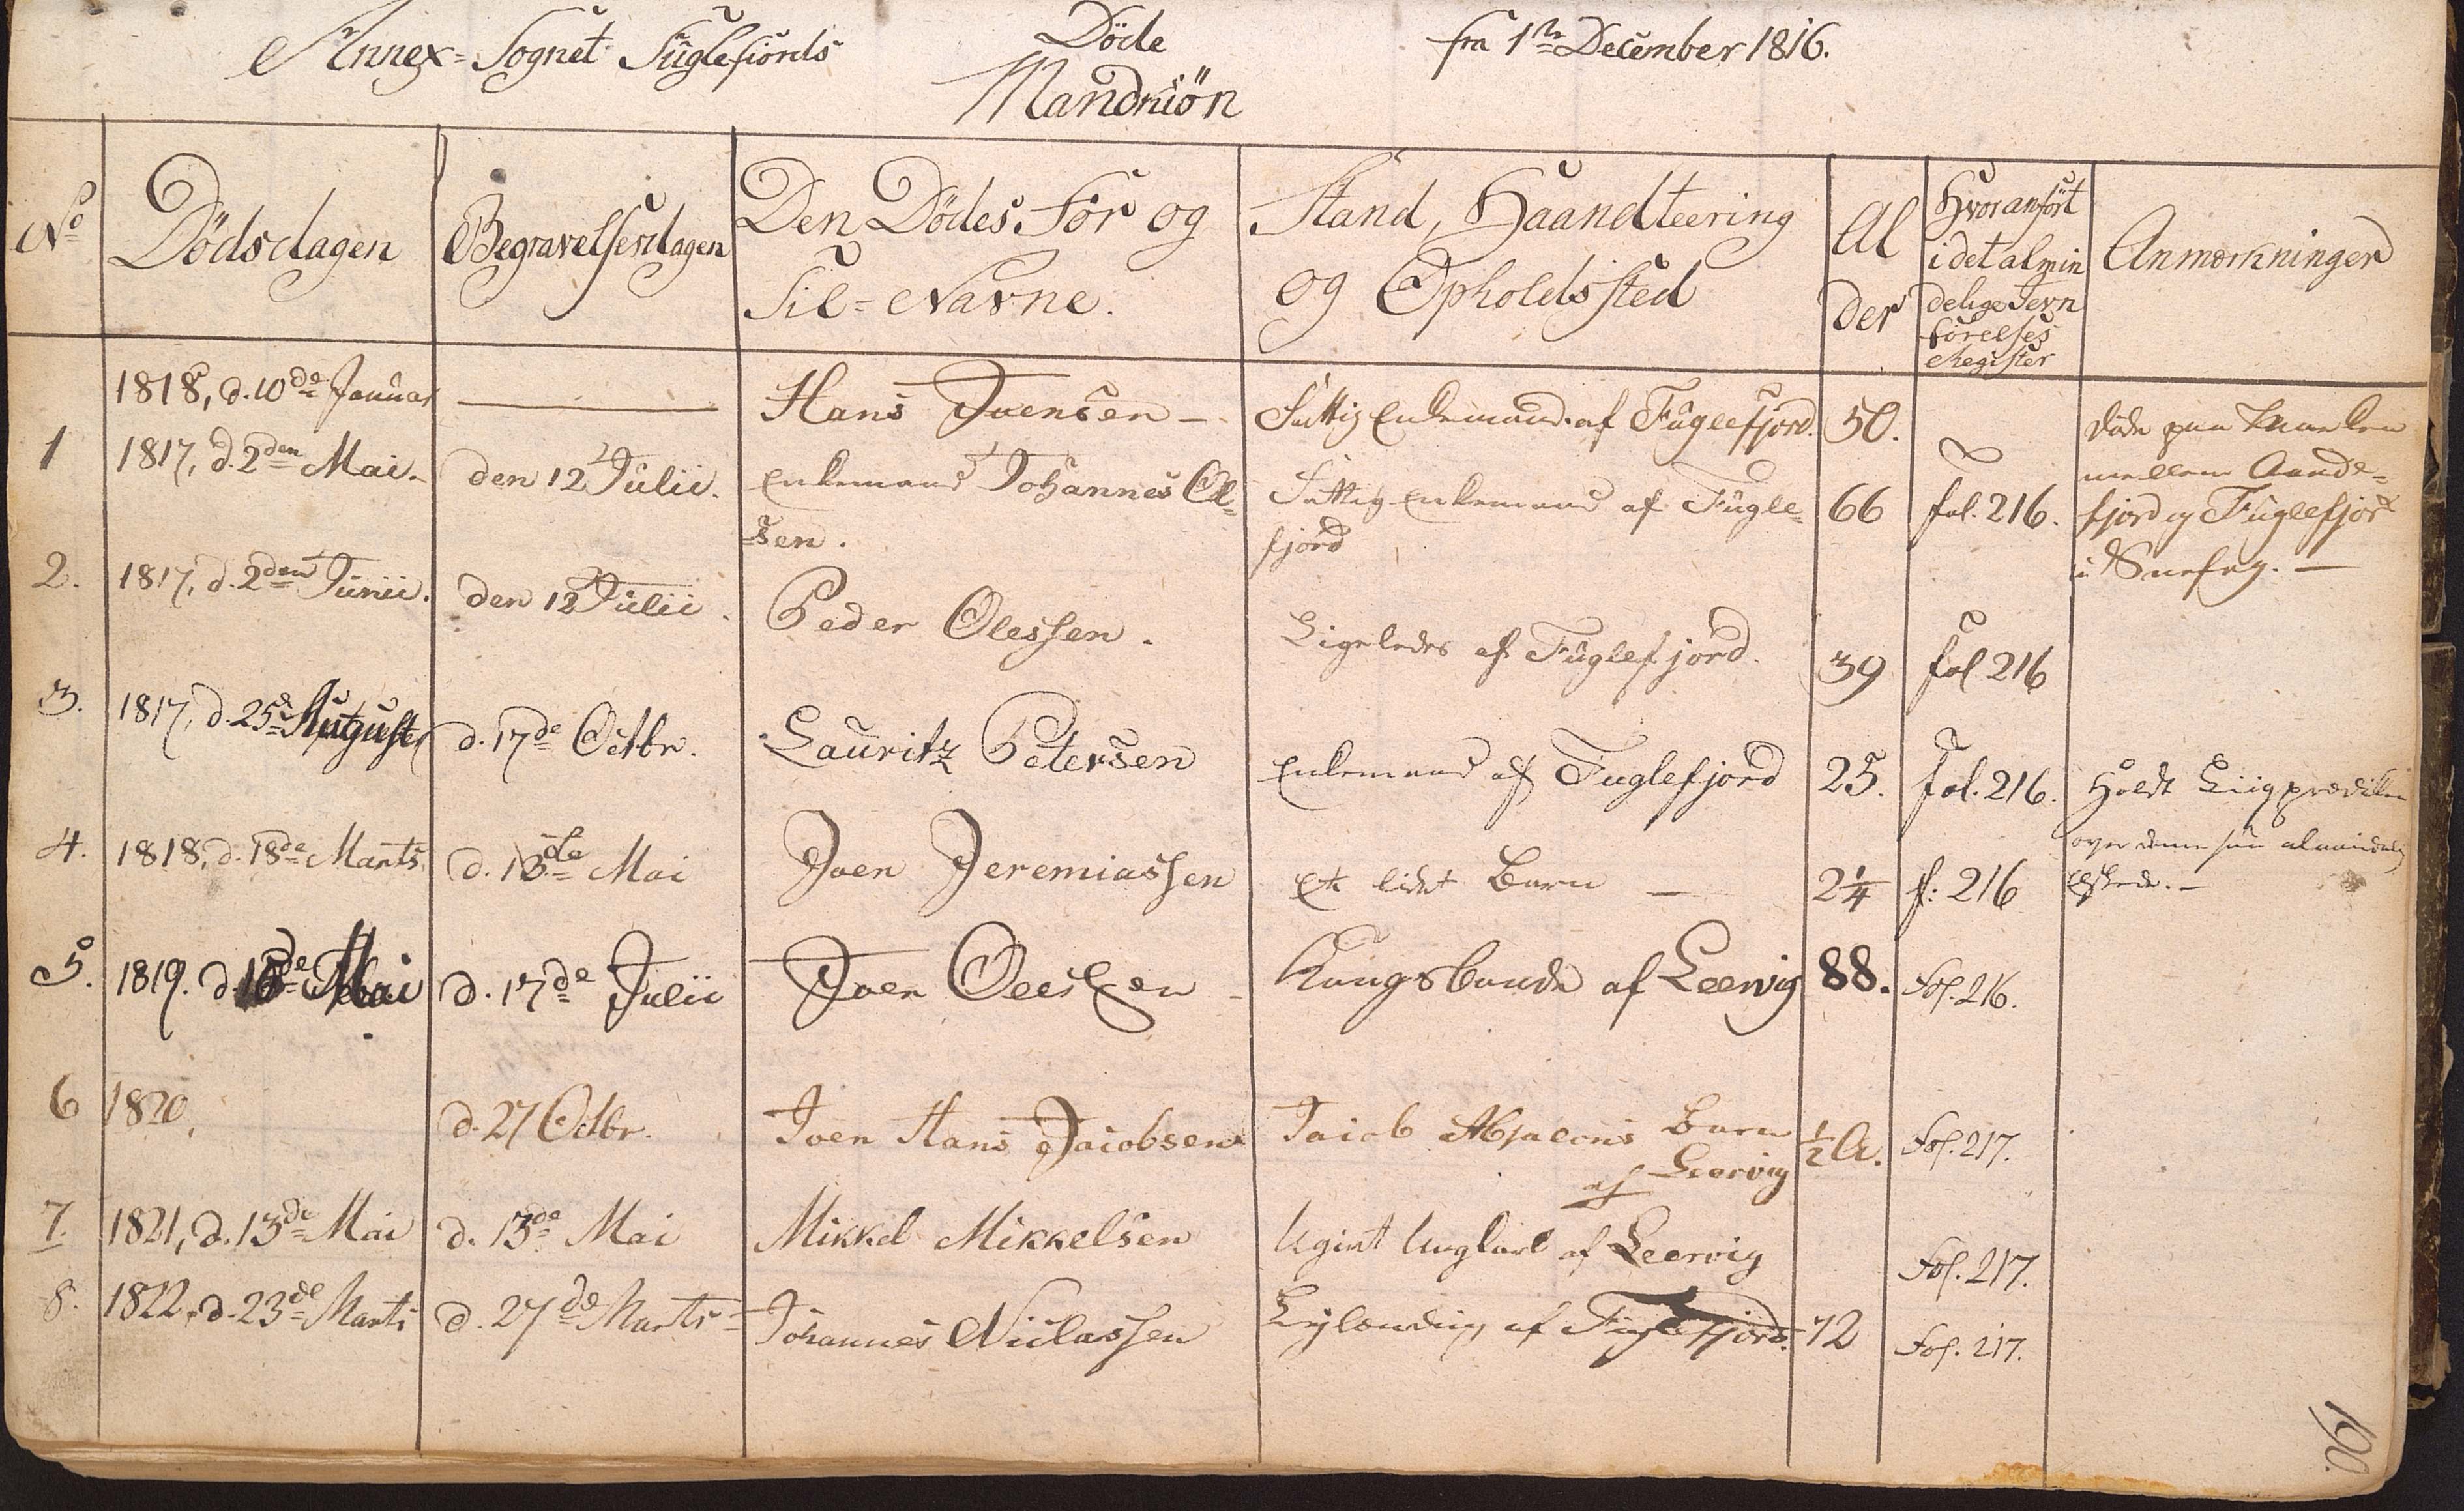 Annex=Sognet Fuglefiords Döde fra 1te December 1816.
Mandkiön
No Dödsdagen Begravelsesdagen Den Dödes For og Til=Navne. Stand, Haandteering og Opholdssted Alder Hvor anfört i det almindelige Jevnförelses Register Anmærkninger
1818, d. 10de Januar — Hans Joensen — Fattig Enkemand af Fuglefjord. 50. döde paa
mellem
fjord og Fuglefjord
i Snefog. —
1 1817, d. 2den Mai. den 12 Julii. Enkemand Johannes Ol=
sen. Fattig Enkemand af Fugle=
fjord 66 fol. 216.
2. 1817, d. 2den Junii. den 12 Julii. Peder Olessen. Ligeledes af Fuglefjord. 39 fol. 216
3. 1817, d. 25de August d. 17de Octbr. Lauritz Petersen Enkemand af Fuglefjord 25. fol. 216. Holdt Liigprædiken
over denne saa almindelig
elskede. —
4. 1818, d. 18de Marts d. 13de Mai Joen Jeremiassen Et lidet Barn — 2 1/4 f: 216
5. 1819. d. Mai d. 17de Julii Joen Olessen Kongsbonde af Leervig 88. Fol. 216.
6 1820, d. 27 Octbr. Joen Hans Jacobsen Jacob Absalons Barn
af Leervig 1/2 A. Fol. 217.
7. 1821, d. 13de Mai d. 13de Mai Mikkel Mikkelsen Ugivt Ungkarl af Leervig Fol. 217.
8. 1822, d. 23de Marts d. 27de Marts Johannes Niclassen af Fuglefjord. 72 Fol. 217.
190.